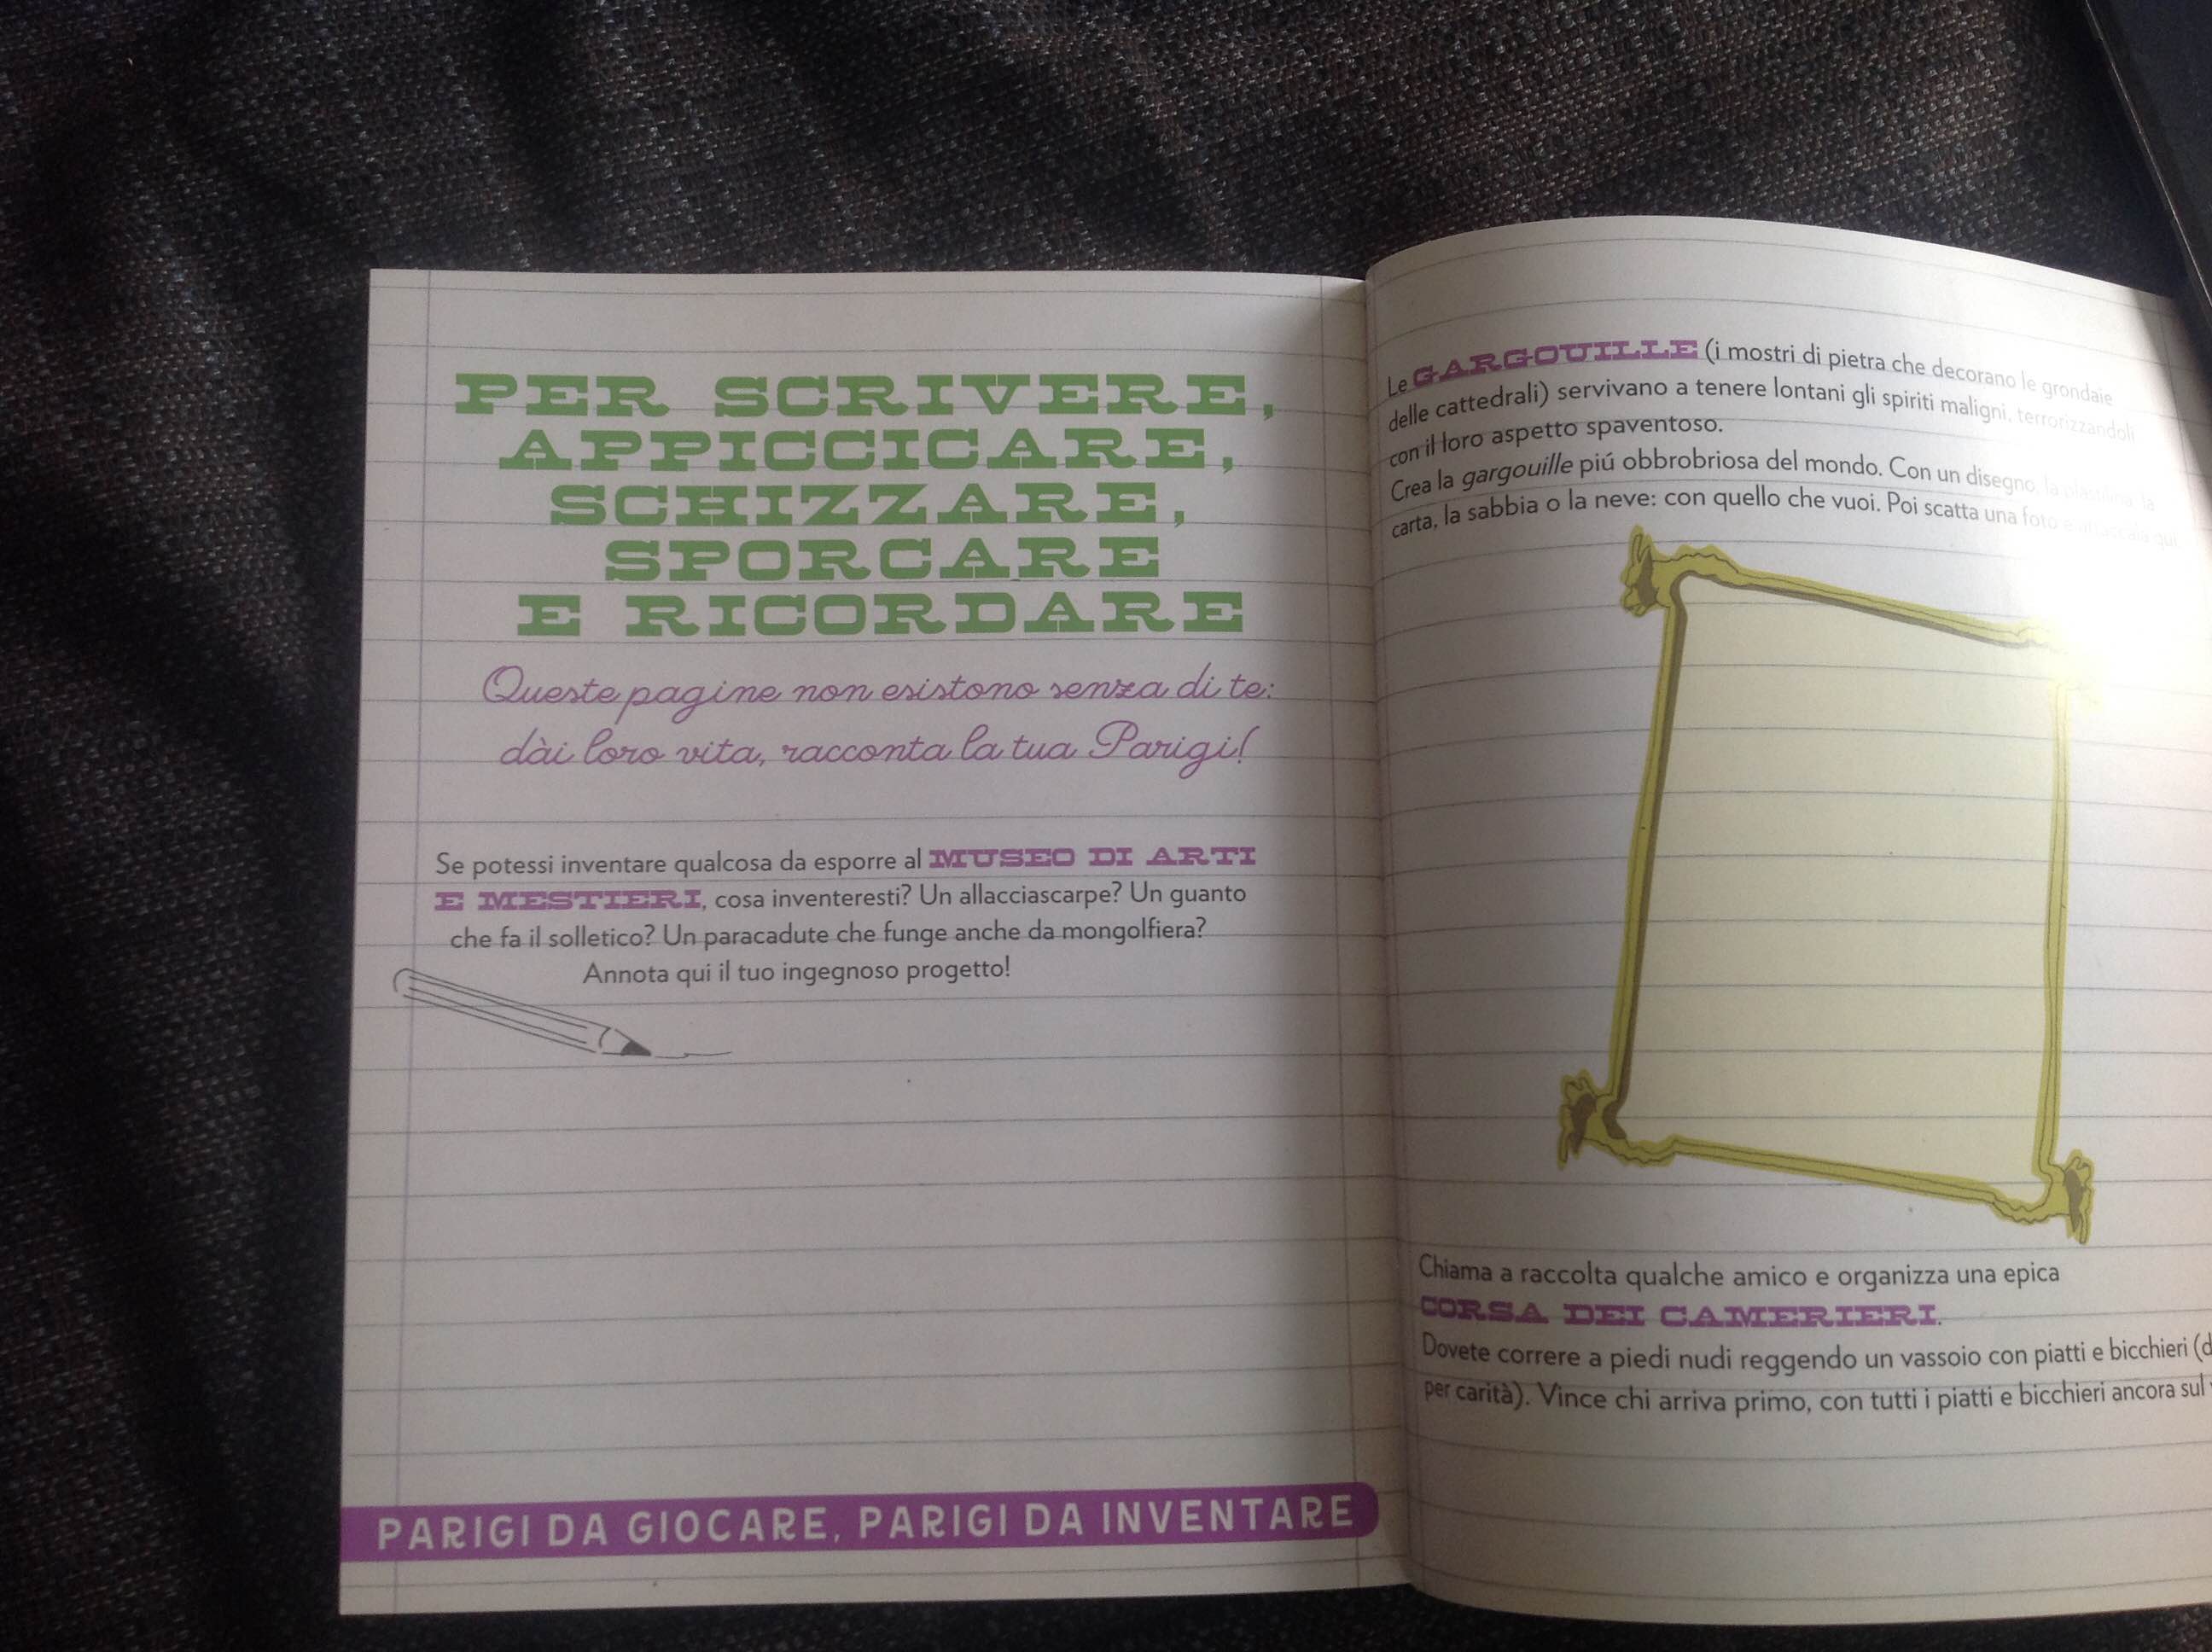 PER SCRIVERE,
APPICCICARE,
SCHIZZARE,
SPORCARE
E RICORDARE
Queste pagine non esistono senza di te:
dài loro vita, racconta la tua Parigi!
Se potessi inventare qualcosa da esporre al MUSEO DI ARTI
E MESTIERI, cosa inventeresti? Un allacciascarpe? Un guanto
che fa il solletico? Un paracadute che funge anche da mongolfiera?
Annota qui il tuo ingegnoso progetto!
PARIGI DA GIOCARE, PARIGI DA INVENTARE
Le GARGOUILLE (i mostri di pietra che decorano le grondaie
delle cattedrali) servivano a tenere lontani gli spiriti maligni, terrorizzandoli
con il loro aspetto spaventoso.
Crea la gargouille piú obbrobriosa del mondo. Con un disegno, la plastilina, la
carta, la sabbia o la neve: con quello che vuoi. Poi scatta una foto e attaccala qui.
Chiama a raccolta qualche amico e organizza una epica
CORSA DEI CAMERIERI.
Dovete correre a piedi nudi reggendo un vassoio con piatti e bicchieri (d
per carità). Vince chi arriva primo, con tutti i piatti e bicchieri ancora sul